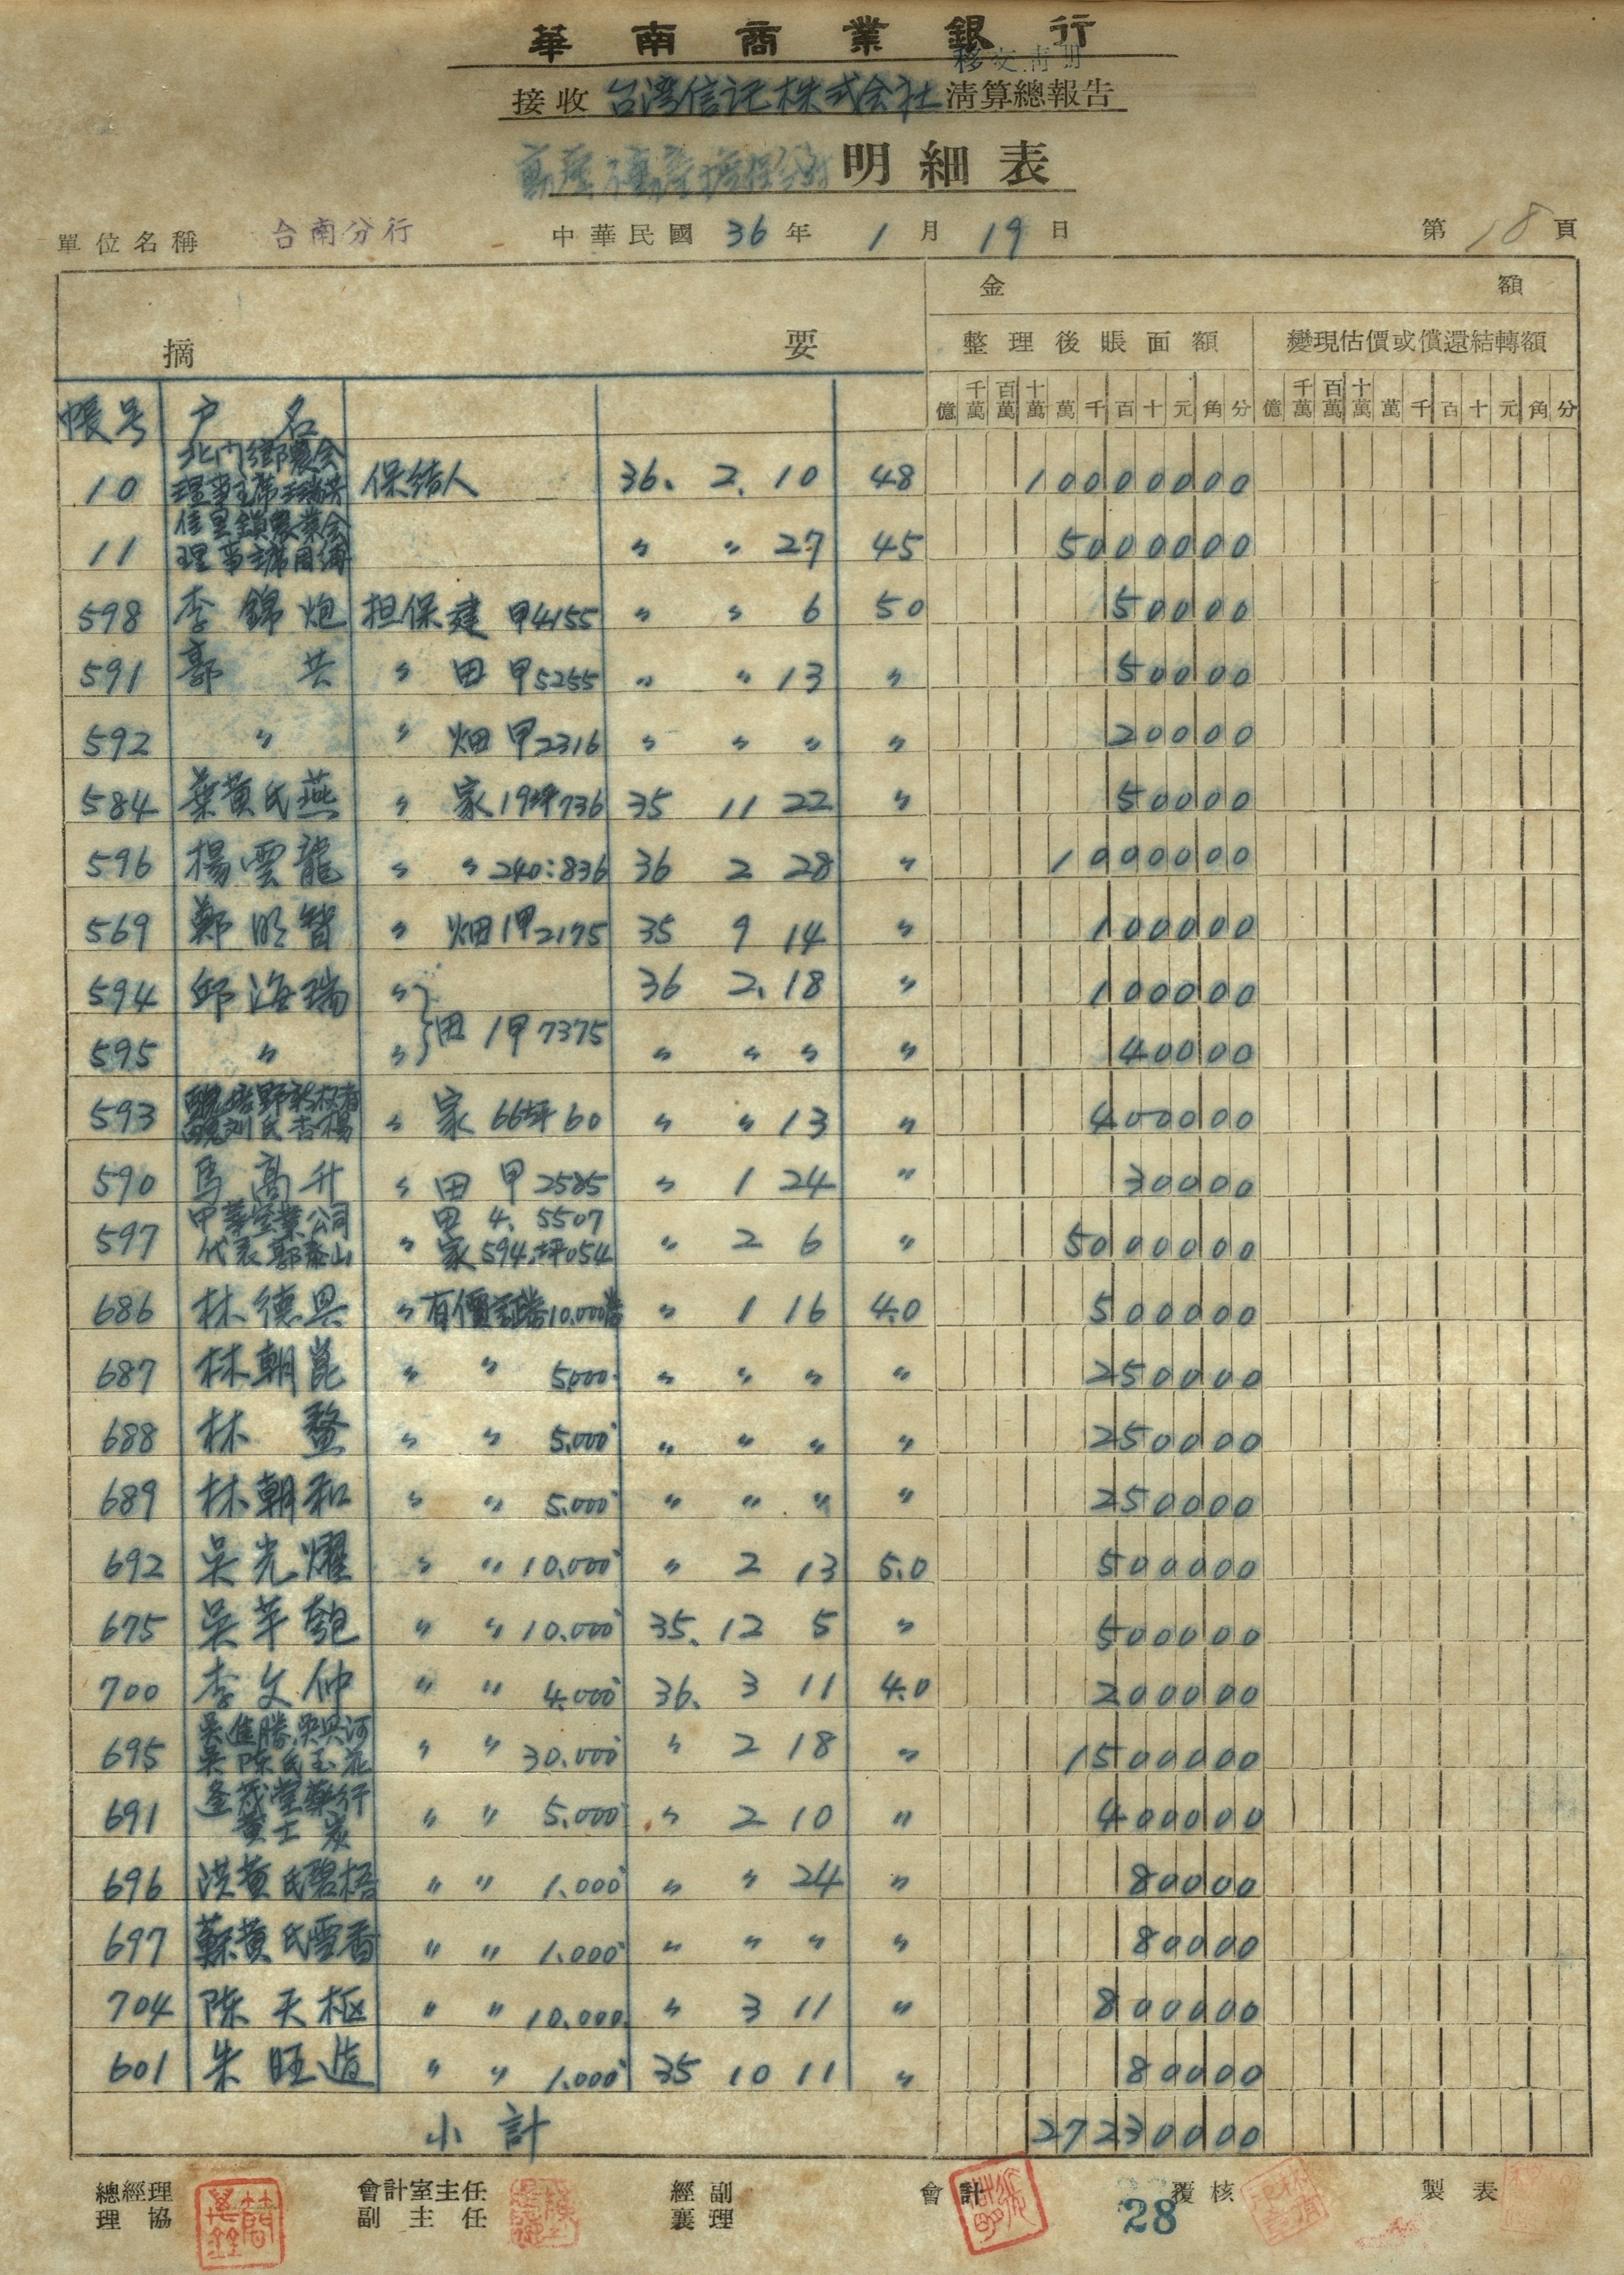 華南商業銀行
移交清冊
接收 台湾信託株式会社 清算總報告
明細表
單位名稱 台南分行 中華民國 36 年 1 月 19 日 第 18 頁
摘要 金額
整理後賬面額 變現估價或償還結轉額
億 千萬 百萬 十萬 萬 千 百 十 元 角 分 億 千萬 百萬 十萬 萬 千 百 十 元 角 分
帳号 户名
北门鄉農会
10 理事主席 保結人 36. 2. 10 48 100000.00
11 理事主席 〃 〃 27 45 5000000
598 李錦炮 担保 建 甲4155 〃 〃 6 50 50000
591 郭共 〃 田 甲5255 〃 〃 13 〃 50000
592 〃 〃 畑 甲2316 〃 〃 〃 〃 20000
584 葉黄氏燕 〃 家 19坪736 35 11 22 〃 50000
596 楊雲龍 〃 〃 240:836 36 2 28 〃 1000000
569 鄭明智 〃 畑 1甲2175 35 9 14 〃 100000
594 邱海瑞 〃 36 2. 18 〃 100000
田 1甲7375
595 〃 〃 〃 〃 〃 〃 40000
593 〃 家 66坪60 〃 〃 13 〃 400000
590 馬高升 〃 田 甲2585 〃 1 24 〃 30000
中華 業公司 田 4. 5507
597 代表郭泰山 〃 家 594.坪054 〃 2 6 〃 5000000
686 林德興 〃 有價証券10.000 〃 1 16 4.0 500000
687 林朝崑 〃 〃 5000 〃 〃 〃 〃 250000
688 林鰲 〃 〃 5.000 〃 〃 〃 〃 250000
689 林朝和 〃 〃 5.000 〃 〃 〃 〃 250000
692 吴光耀 〃 〃 10.000 〃 2 13 5.0 500000
675 吴芊匏 〃 〃 10.000 35. 12 5 〃 500000
700 李文仲 〃 〃 4.000 36. 3 11 4.0 200000
吴進勝.吴興河
695 吴陳氏玉花 〃 〃 30.000 〃 2 18 〃 1500000
逢茂堂藥行
691 黄士炭 〃 〃 5.000 〃 2 10 〃 400000
696 洪黄氏碧梧 〃 〃 1.000 〃 〃 24 〃 80000
697 蘇黄氏雲香 〃 〃 1.000 〃 〃 〃 〃 80000
704 陈天枢 〃 〃 10.000 〃 3 11 〃 800000
601 朱旺 〃 〃 1.000 35 10 11 〃 80000
小計 27230000
總經理 會計室主任 經副 會計 覆核 製表
理協 副主任 襄理
28